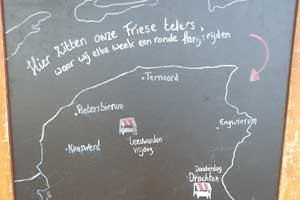 Hier zitten onze Friese telers,
waar wij elke week een ronde langs rijden
Ternaard
Pietersbierum
Engwierum
Kimswerd
Leeuwarden
Vrijdag
Donderdag
Drachten